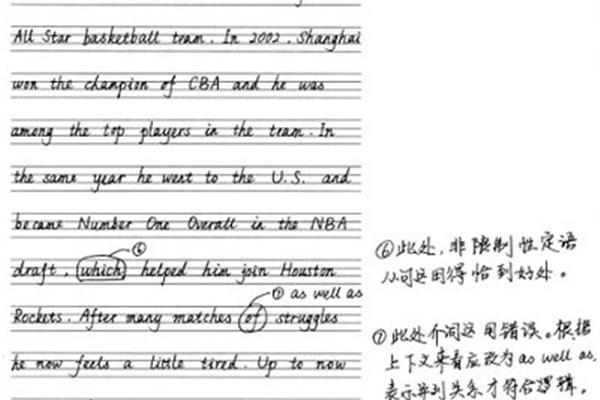 All Star basketball team. In 2002, Shanghai
won the champion of CBA and he was
among the top players in the team. In
the same year he went to the U.S. and
became Number One Overall in the NBA
⑥
draft, which helped him join Houston
⑦ as well as
Rockets. After many matches of struggles
he now feels a little tired. Up to now
⑥此处,非限制性定语
从句运用得恰到好处。
⑦此处介词运用错误。根据
上下文来看应改为as well as,
表示并列关系才符合逻辑。